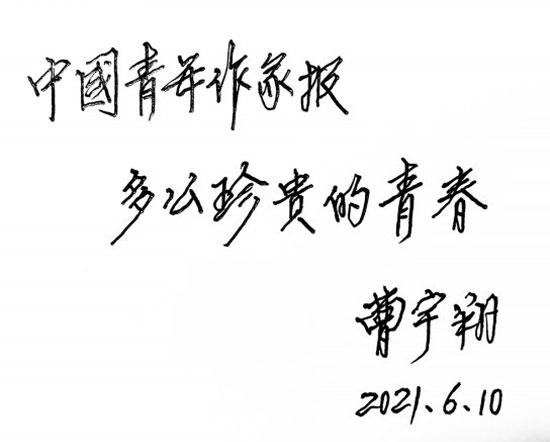 中國青年作家报
多么珍贵的青春
曹宇翔
2021.6.10